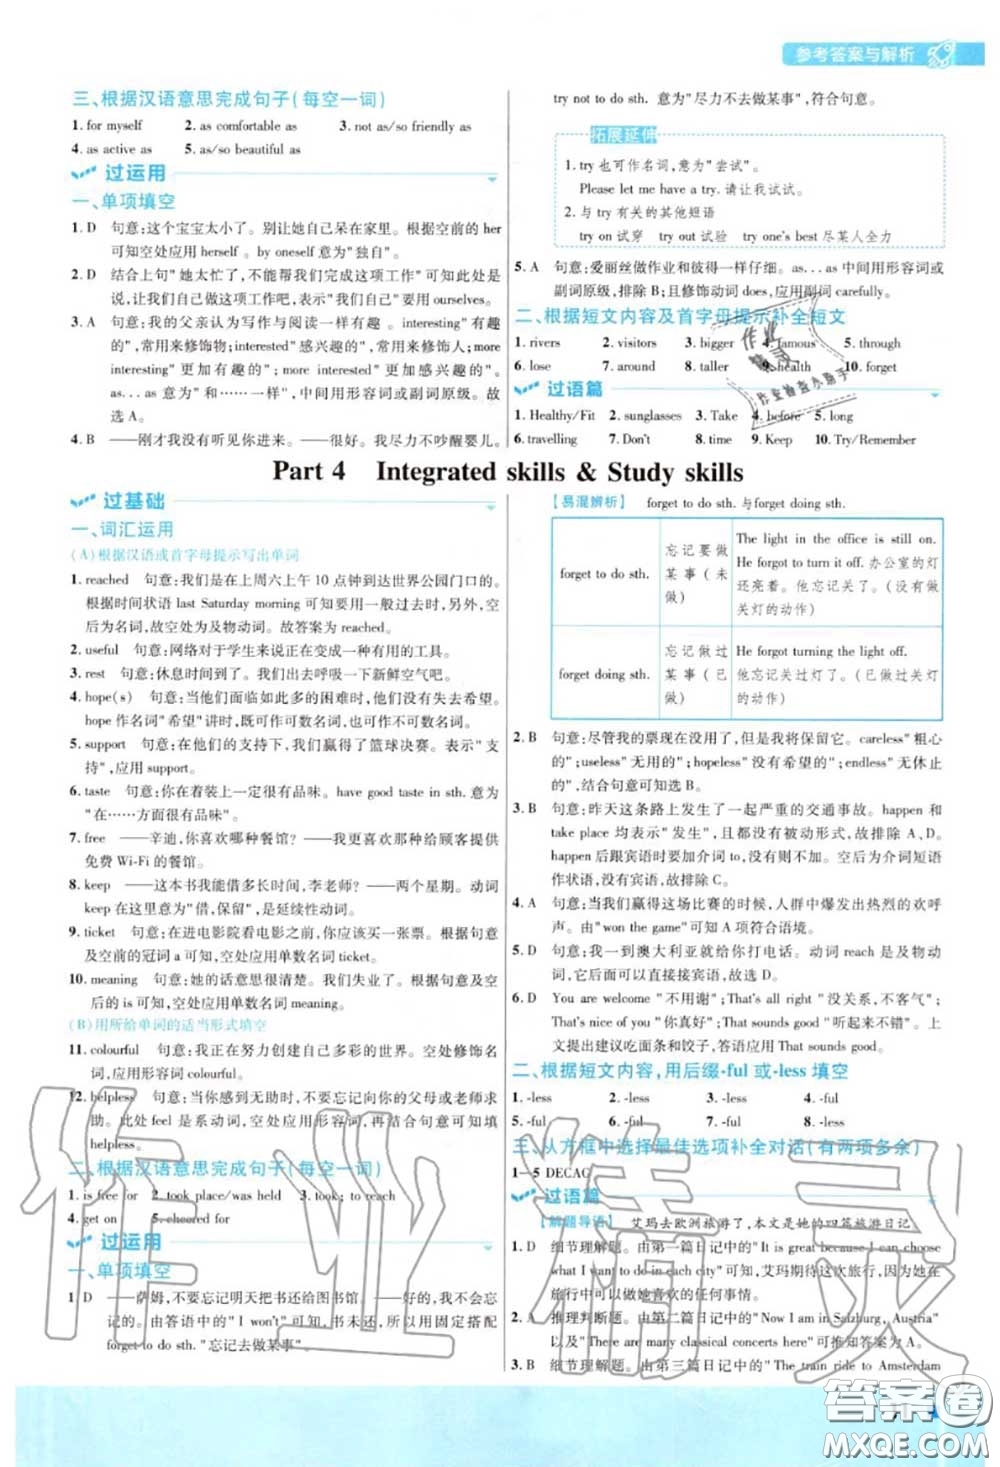 参考答案与解析
三、根据汉语意思完成句子(每空一词)
1. for myself 2. as comfortable as 3. not as/so friendly as
4. as active as 5. as/so beautiful as
过运用
一、单项填空
1. D 句意:这个宝宝太小了。别让她自己呆在家里。根据空前的 her
可知空处应用 herself 。by oneself 意为"独自"。
2. D 结合上句"她太忙了,不能帮我们完成这项工作"可知此处应是
说,让我们自己做这项工作,表示"我们自己"要用 ourselves。
3. A 句意:我的父亲认为写作与阅读一样有趣 。interesting"有趣的
",常用来修饰物; interested" 感兴趣的",常用来修饰人;more
interesting"更加有趣的";more interested"更加感兴趣的"
。as…as 意为"和……一样",中间用形容词或副词原级。故
选 A。
4. B ——刚才我没有听见你进来。——很好。我尽力不吵醒婴儿。
try not to do sth. 意为"尽力不去做某事",符合句意。
拓展延伸
1. try 也可作名词,意为"尝试"。
Please let me have a try. 请让我试试。
2. 与 try 有关的其他短语
try on 试穿 try out 试验 try one's best 尽某人全力
5. A 句意:爱丽丝做作业和彼得一样仔细。as…as 中间用形容词或
副词原级,排除 B;且修饰动词 does,应用副词 carefully。
二、根据短文内容及首字母提示补全短文
1. rivers 2. visitors 3. bigger 4. famous 5. through
6. lose 7. around 8. taller 9. health 10. forget
过语篇
1. Healthy/Fit 2. sunglasses 3. Take 4. before 5. long
6. travelling 7. Don't 8. time 9. Keep 10. Try/Remember
Part 4 Integrated skills & Study skills
过基础
一、词汇运用
(A)根据汉语或首字母提示写出单词
1. reached 句意:我们是在上周六上午 10 点钟到达世界公园门口的。
根据时间状语 last Saturday morning 可知要用一般过去时,另外,空
后为名词,故空处为及物动词。故答案为 reached。
2. useful 句意:网络对于学生来说正在变成一种有用的工具。
3. rest 句意:休息时间到了。我们出去呼吸一下新鲜空气吧。
4. hope(s) 句意:当他们面临如此多的困难时,他们没有失去希望。
hope 作名词"希望"讲时,既可作可数名词,也可作不可数名词。
5. support 句意:在他们的支持下,我们赢得了篮球决赛。表示"支
持",应用 support。
6. taste 句意:你在着装上一定很有品味。have good taste in sth. 意为
"在……方面很有品味"。
7. free ——辛迪,你喜欢哪种餐馆? ——我更喜欢能给顾客提供
免费 Wi-Fi 的餐馆。
8. keep ——这本书我能借多长时间,李老师? ——两个星期。动词
keep 在这里意为"借,保留",是延续性动词。
9. ticket 句意:在进电影院看电影之前,你应该买一张票。根据句意
及空前的冠词 a 可知,空处应用单数名词 ticket。
10. meaning 句意:她的话意思很清楚。我们失业了。根据句意及空
后的 is 可知,空处应用单数名词 meaning。
(B)用所给单词的适当形式填空
11. colourful 句意:我正在努力创建自己多彩的世界。空处修饰名
词,应用形容词 colourful。
12. helpless 句意:当你感到无助时,不要忘记向你的父母或老师求
助。此处 feel 是系动词,空处应用形容词,再根据句意可知填
helpless。
二、根据汉语意思完成句子(每空一词)
1. is free for 2. took place/was held 3. took; to reach
4. get on 5. cheered for
过运用
一、单项填空
1. D ——萨姆,不要忘记明天把书还给图书馆。——好的,我不会忘
的。由答语中的"I won't"可知,书未还,所以用固定搭配
forget to do sth. "忘记去做某事"。
【易混辨析】 forget to do sth. 与forget doing sth.
forget to do sth. 忘记要做某事(未做) The light in the office is still on. He forgot to turn it off. 办公室的灯还亮着。他忘记关了。(没有做关灯的动作)
forget doing sth. 忘记做过某事(已做) He forgot turning the light off. 他忘记关过灯了。(已做过关灯的动作)
2. B 句意:尽管我的票现在没用了,但我将保留它。careless"粗心
的";useless"无用的"; hopeless"没有希望的";endless"无止境
的",结合句意可知选 B。
3. B 句意:昨天这条路上发生了一起严重的交通事故。happen 和
take place 均表示"发生",且都没有被动形式,故排除 A、D。
happen 后跟宾语时要加介词 to,且空后为介词短语
作状语,故排除 C。
4. A 句意:当我们赢得这场比赛的时候,人群中爆发出热烈的欢呼
声。由"won the game"可知 A 项符合语境。
5. D 句意:我一到澳大利亚就给你打电话。动词 reach 是及物动
词,其后直接接宾语,故选 D。
6. D You are welcome "不用谢";That's all right "没关系,不客气";
That's nice of you "你真好";That sounds good "听起来不错"。上
文提出建议吃面条和饺子,答语应用 That sounds good。
二、根据短文内容,用后缀-ful 或-less 填空
1. -less 2. -less 3. -less 4. -ful
5. -less 6. -ful 7. -less 8. -ful
三、从方框中选择最佳选项补全对话(有两项多余)
1—5 DECAG
过语篇
【解题导语】 艾玛去欧洲旅游了,本文是她的四篇旅游日记。
1. D 细节理解题。由第一篇日记中的"It is great because I can do
what I want to do in each city"可知,艾玛期待这次旅行,因为她在
旅行中可以做她喜欢的任何事情。
2. A 推理判断题。由第二篇日记中的"Now I am in Salzburg, Austria"
以及"There are many classical concerts here"可推知答案为 A。
3. B 细节理解题。由第三篇日记中的"The train ride to Amsterdam
作业精灵
答案圈
MXQE.COM